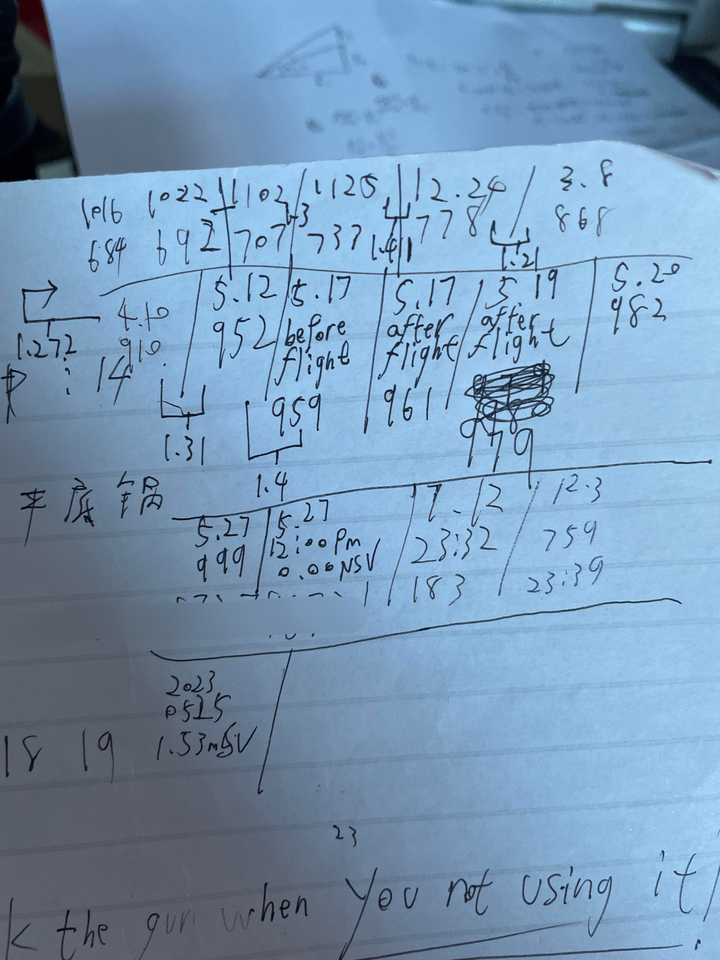 1016 1022 1102 1125 12.24 3.8
684 692 707 733 778 868
1.3 1.41 1.21
4.10 5.12 5.17 5.17 5.19 5.20
910 952 before flight after flight after flight 982
1.272
P : 14
959 961 979
1.31
1.4
平底锅
5.27 5.27 7.12 12.3
999 12:00 PM 23:32 759
0.00 NSV 183 23:39
2023
0525
18 19 1.53mSV
23
the gun when you not using it!